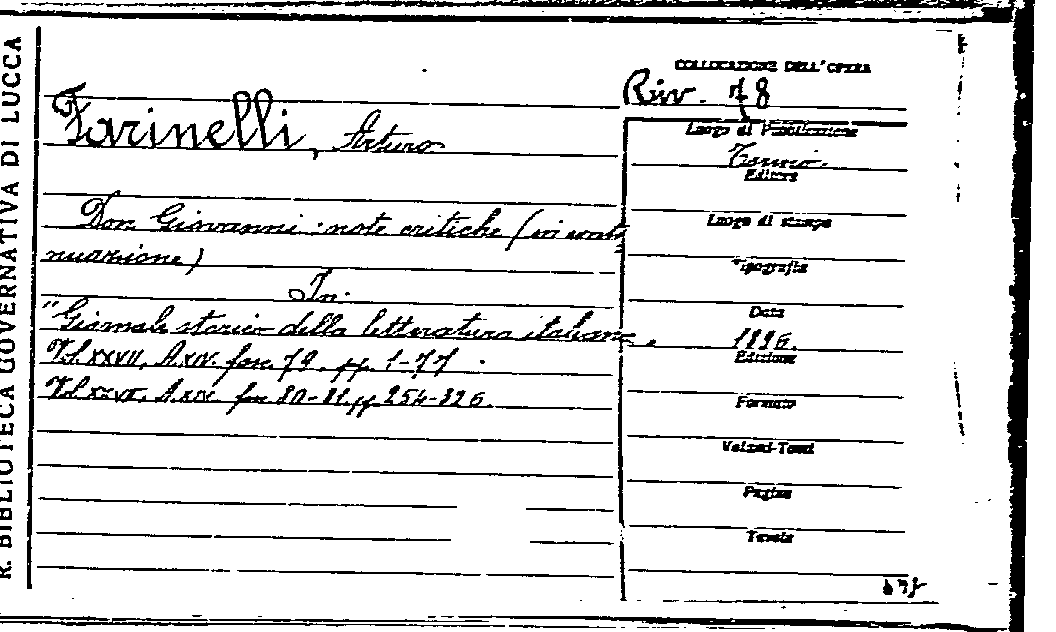 R. BIBLIOTECA GOVERNATIVA DI LUCCA
COLLOCAZIONE DELL'OPERA
Riv. 78
Farinelli, Arturo
Don Giovanni: note critiche (in conti
nuazione)
In:
"Giornale storico della letteratura italiana
Vol XXVII, A. XIV. fasc. 79. pp. 1-77
Vol A. XIV. fasc 80-81. pp. 254-326.
Luogo di Pubblicazione
Torino.
Editore
Luogo di stampa
Tipografia
Data
1896.
Edizione
Formato
Volumi-Tomi
Pagine
Tavole